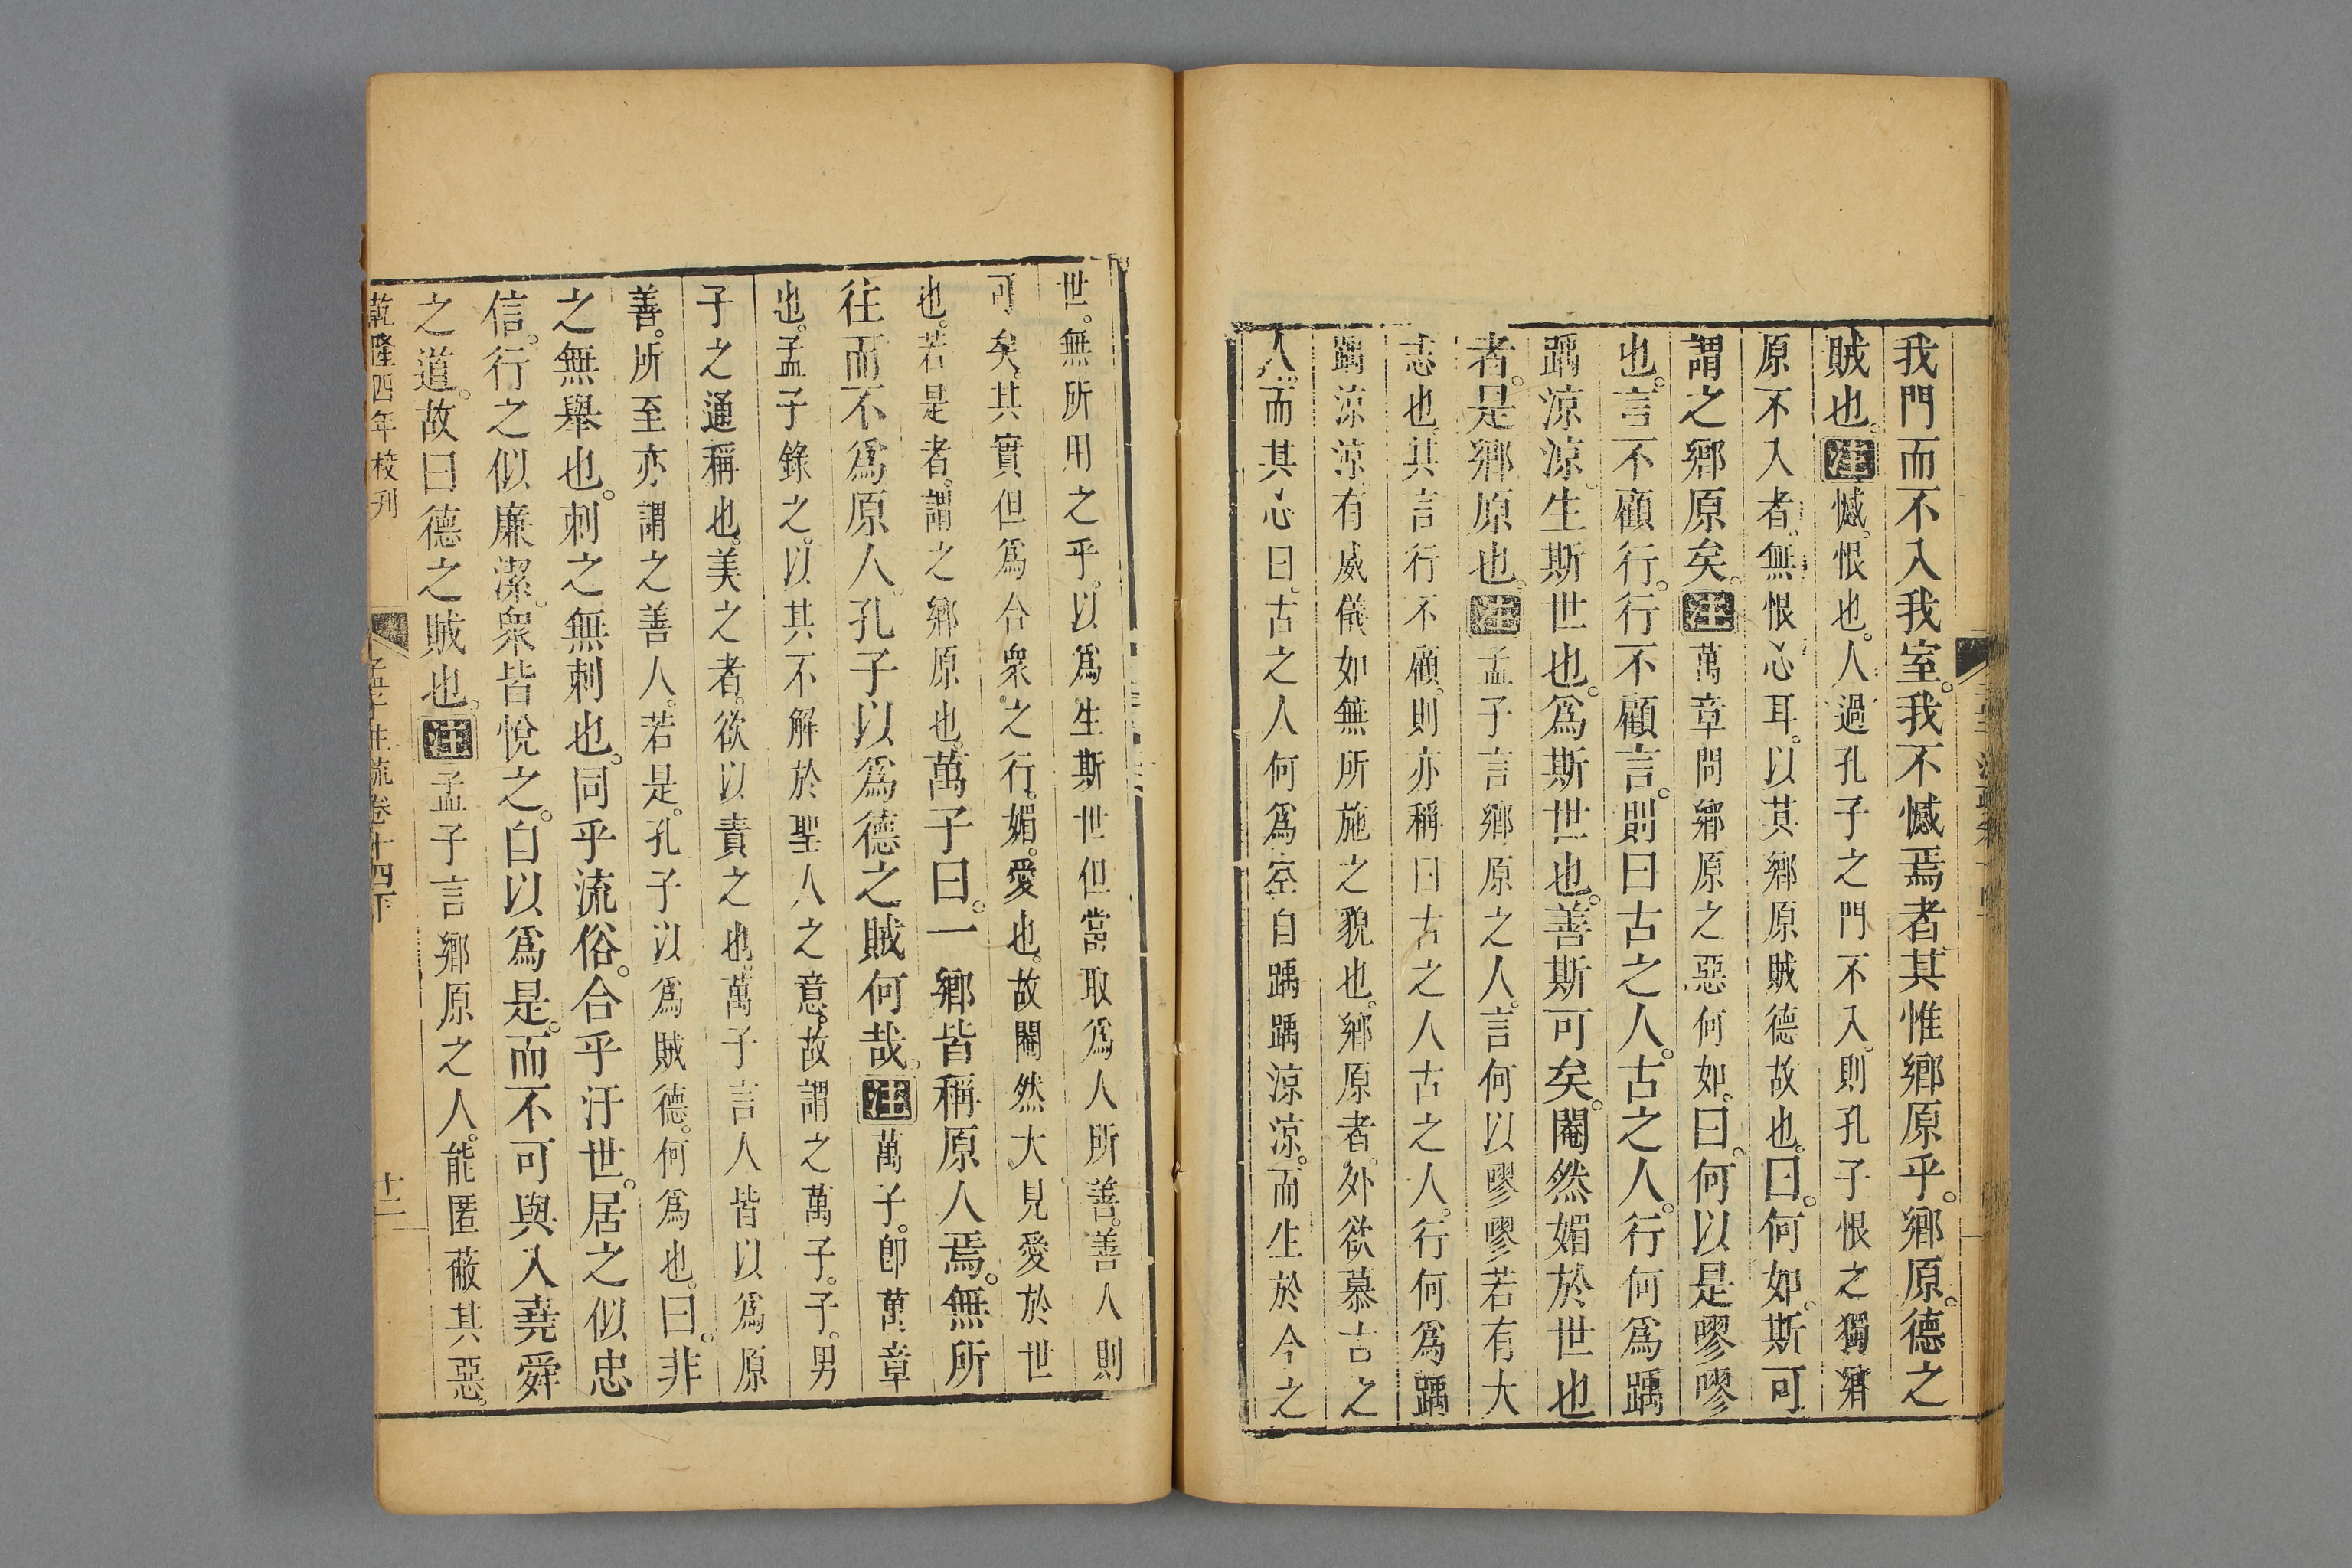 我門而不入我室。我不憾焉者。其惟鄉原乎。鄉原。德之
賊也。注憾。恨也。人過孔子之門不入。則孔子恨之。獨鄉
原不入者。無恨心耳。以其鄉原賊德故也。曰。何如。斯可
謂之鄉原矣。注萬章問鄉原之惡何如。曰。何以是嘐嘐
也。言不顧行。行不顧言。則曰古之人。古之人。行何爲踽
踽涼涼。生斯世也。爲斯世也。善斯可矣。閹然媚於世也
者。是鄉原也。注孟子言鄉原之人。言何以嘐嘐若有大
志也。其言行不顧。則亦稱曰古之人古之人。行何爲踽
踽涼涼。有威儀如無所施之貌也。鄉原者。外欲慕古之
人。而其心曰。古之人何爲空自踽踽涼涼。而生於今之
世。無所用之乎。以爲生斯世但當取爲人所善。善人則
可矣。其實但爲合衆之行。媚。愛也。故閹然大見愛於世
也。若是者。謂之鄉原也。萬子曰。一鄉皆稱原人焉。無所
往而不爲原人。孔子以爲德之賊何哉。注萬子。卽萬章
也。孟子錄之。以其不解於聖人之意。故謂之萬子。子。男
子之通稱也。美之者。欲以責之也。萬子言人皆以爲原
善。所至亦謂之善人。若是。孔子以爲賊德。何爲也。曰。非
之無舉也。刺之無刺也。同乎流俗。合乎汙世。居之似忠
信。行之似廉潔。衆皆悅之。自以爲是。而不可與入堯舜
之道。故曰德之賊也。注孟子言鄉原之人。能匿蔽其惡。
乾隆四年校刊
孟子注疏卷十四下
十二